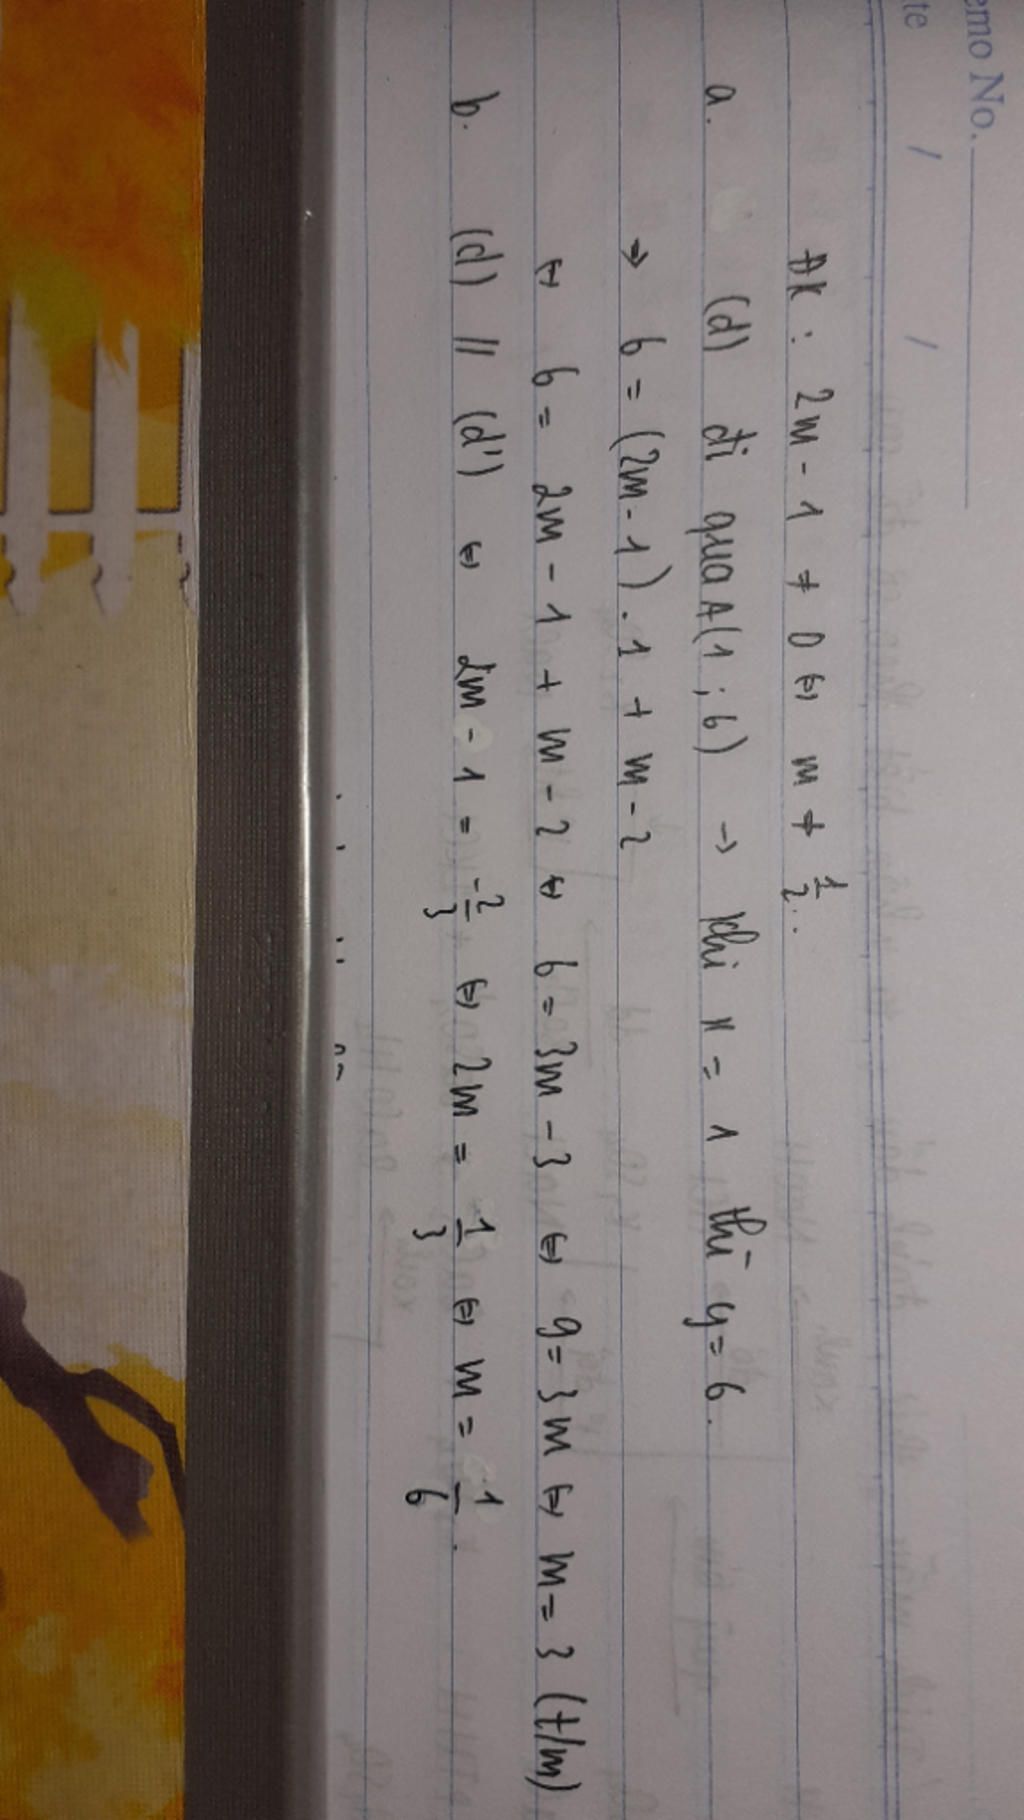 emo No.
te / /
ĐK : 2m - 1 ≠ 0 ⇔ m ≠ 1/2 .
a. (d) đi qua A(1 ; 6) → khi x = 1 thì y = 6 .
⇒ 6 = (2m - 1) . 1 + m - 2
⇔ 6 = 2m - 1 + m - 2 ⇔ 6 = 3m - 3 ⇔ 9 = 3m ⇔ m = 3 (t/m)
b. (d) // (d') ⇔ 2m - 1 = -2/3 ⇔ 2m = 1/3 ⇔ m = 1/6 .